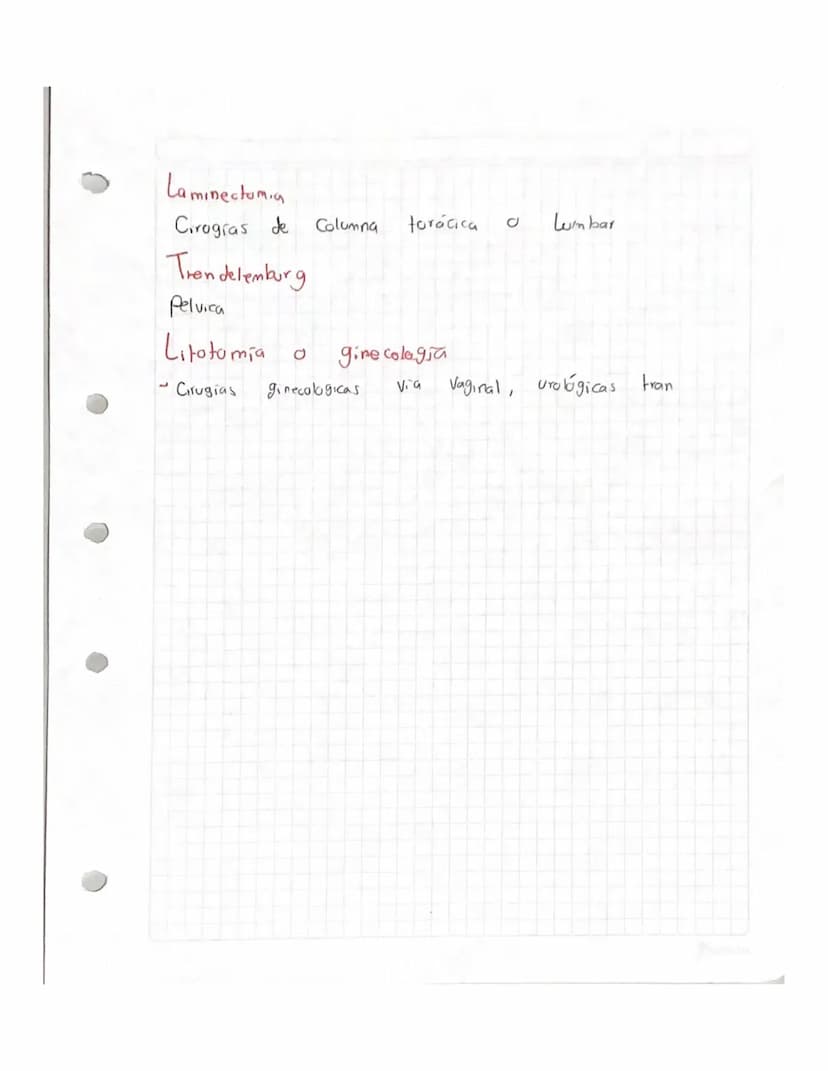 Laminectomia
Cirogías de Columna torácica o Lumbar
Trendelemburg
Pelvica
Litotomía o ginecología
- Cirugías ginecologicas via Vaginal, urológicas tran